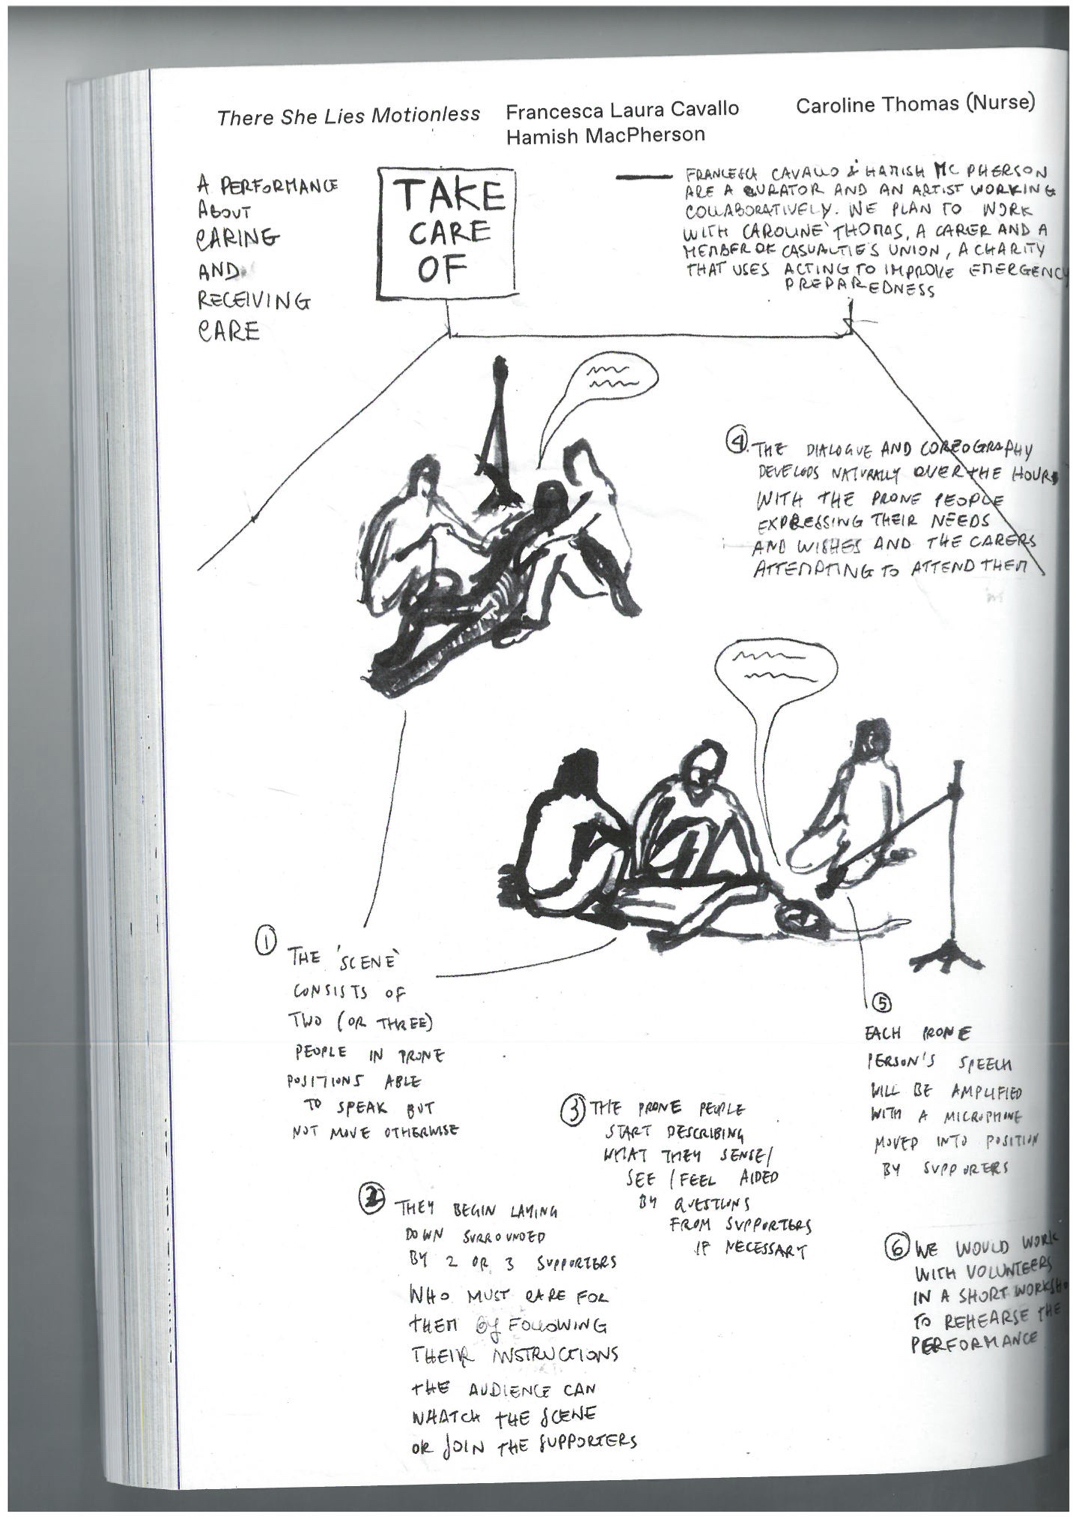 There She Lies Motionless
Francesca Laura Cavallo
Hamish MacPherson
Caroline Thomas (Nurse)
A PERFORMANCE
ABOUT
CARING
AND
RECEIVING
CARE
TAKE
CARE
OF
FRANCESCA CAVALLO & HAMISH MC PHERSON
ARE A CURATOR AND AN ARTIST WORKING
COLLABORATIVELY. WE PLAN TO WORK
WITH CAROLINE THOMAS, A CARER AND A
MEMBER OF CASUALTIES UNION, A CHARITY
THAT USES ACTING TO IMPROVE EMERGENCY
PREPAREDNESS
4. THE DIALOGUE AND COREOGRAPHY
DEVELOPS NATURALLY OVER THE HOURS
WITH THE PRONE PEOPLE
EXPRESSING THEIR NEEDS
AND WISHES AND THE CARERS
ATTEMPTING TO ATTEND THEM
1 THE 'SCENE'
CONSISTS OF
TWO (OR THREE)
PEOPLE IN PRONE
POSITIONS ABLE
TO SPEAK BUT
NOT MOVE OTHERWISE
2 THEY BEGIN LAYING
DOWN SURROUNDED
BY 2 OR 3 SUPPORTERS
WHO MUST CARE FOR
THEM BY FOLLOWING
THEIR INSTRUCTIONS
THE AUDIENCE CAN
WHATCH THE SCENE
OR JOIN THE SUPPORTERS
3 THE PRONE PEOPLE
START DESCRIBING
WHAT THEY SENSE/
SEE/FEEL AIDED
BY QUESTIONS
FROM SUPPORTERS
IF NECESSARY
5
EACH PRONE
PERSON'S SPEECH
WILL BE AMPLIFIED
WITH A MICROPHONE
MOVED INTO POSITION
BY SUPPORTERS
6 WE WOULD WORK
WITH VOLUNTEERS
IN A SHORT WORKSH
TO REHEARSE THE
PERFORMANCE